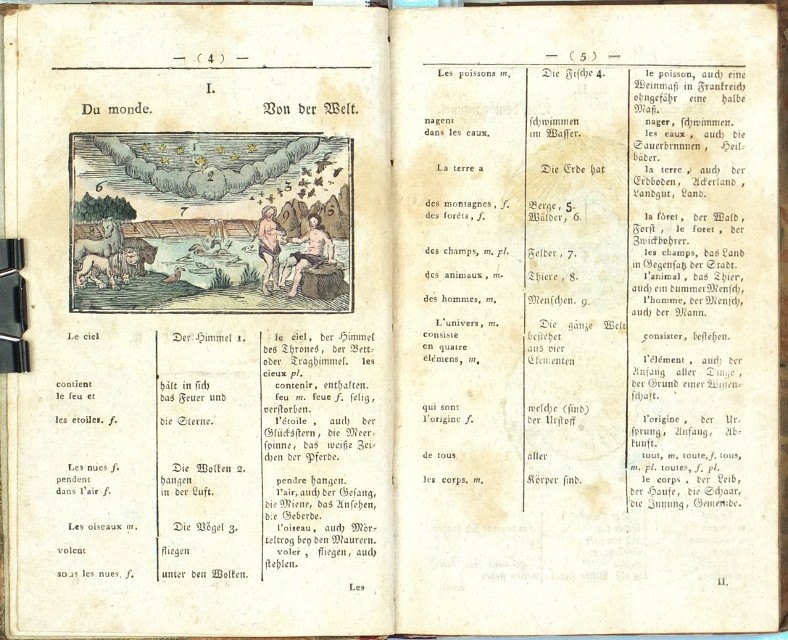 — ( 4 ) —
I.
Du monde. Von der Welt.
1
2
3
6
7
5
Le ciel
contient
le feu et
les étoiles, f.
Les nues f.
pendent
dans l'air f.
Les oiseaux m.
volent
sous les nues, f.
Der Himmel 1.
hält in sich
das Feuer und
die Sterne.
Die Wolken 2.
hangen
in der Luft.
Die Vögel 3.
fliegen
unter den Wolken.
le ciel, der Himmel
des Thrones, der Bett-
oder Traghimmel. les
cieux pl.
contenir, enthalten.
feu m. feue f. selig,
verstorben.
l'étoile, auch der
Glücksstern, die Meer-
spinne, das weiße Zei-
chen der Pferde.
pendre hangen.
l'air, auch der Gesang,
die Miene, das Ansehen,
die Geberde.
l'oiseau, auch Mör-
teltrog bey den Maurern.
voler, fliegen, auch
stehlen.
Les
— ( 5 ) —
Les poissons m.
nagent
dans les eaux.
La terre a
des montagnes, f.
des forêts, f.
des champs, m. pl.
des animaux, m.
des hommes, m.
L'univers, m.
consiste
en quatre
élémens, m.
qui sont
l'origine f.
de tous
les corps, m.
Die Fische 4.
schwimmen
im Wasser.
Die Erde hat
Berge, 5.
Wälder, 6.
Felder, 7.
Thiere, 8.
Menschen. 9.
Die gänze Welt
bestehet
aus vier
Elementen
welche (sind)
der Urstoff
aller
Körper sind.
le poisson, auch eine
Weinmaß in Frankreich
ohngefähr eine halbe
Maß.
nager, schwimmen.
les eaux, auch die
Sauerbrunnen, Heil-
bäder.
la terre, auch der
Erdboden, Ackerland,
Landgut, Land.
la fôret, der Wald,
Forst, le foret, der
Zwickbohrer.
les champs, das Land
in Gegensatz der Stadt.
l'animal, das Thier,
auch ein dummer Mensch,
l'homme, der Mensch,
auch der Mann.
consister, bestehen.
l'élément, auch der
Anfang aller Dinge,
der Grund einer Wissen-
schaft.
l'origine, der Ur-
sprung, Anfang, Ab-
kunft.
tout, m. toute, f. tous,
m. pl. toutes, f. pl.
le corps, der Leib,
der Haufe, die Schaar,
die Innung, Gemeinde.
II.